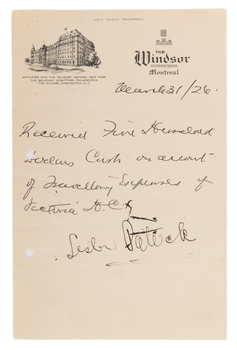 THE
Windsor
Montreal
AFFILIATED WITH THE WALDORF-ASTORIA, NEW YORK
THE BELLEVUE-STRATFORD, PHILADELPHIA
THE WILLARD, WASHINGTON, D.C.
March 31/26.
Received Five Hundred
Dollars Cash on account
of Travelling Expenses of
Victoria H.C.
Lester Patrick